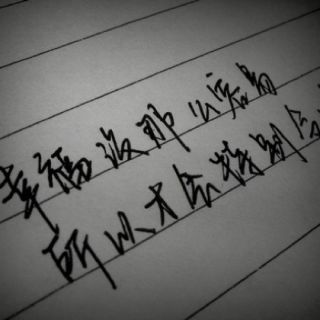 幸福没那么容易
所以才会特别令